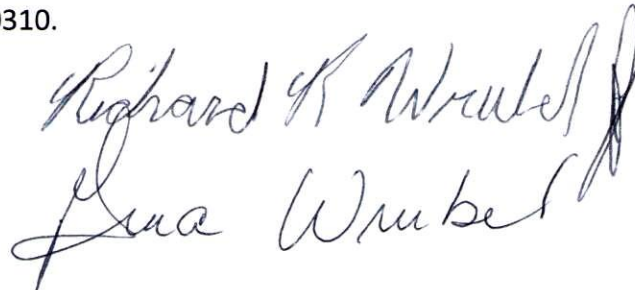 0310.
Richard R Wrubel Jr
Gina Wrubel